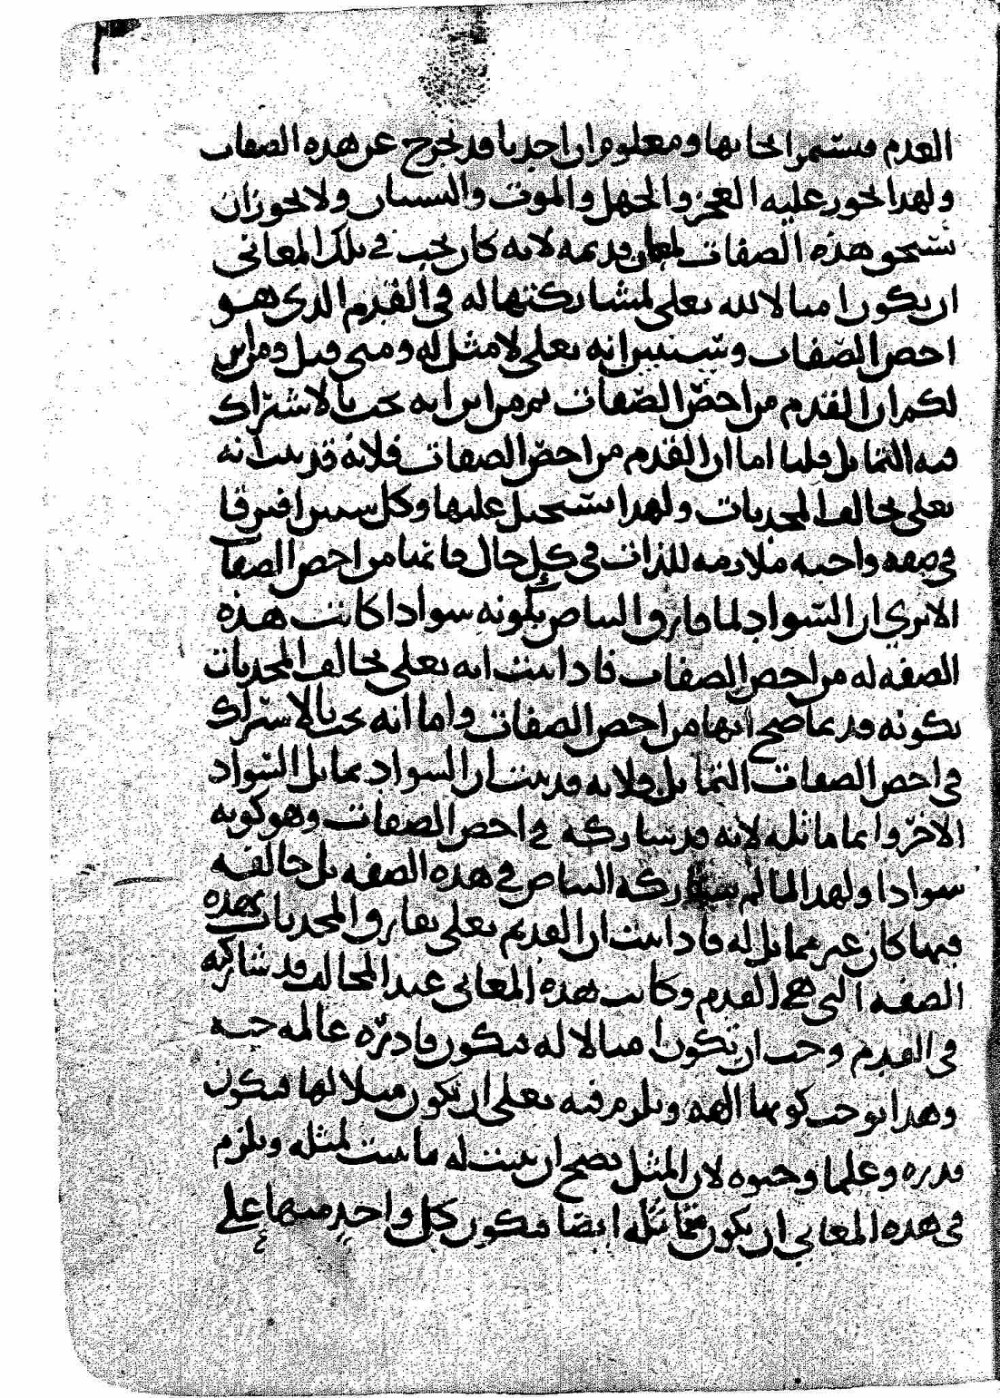 العدم فيستمر إيجابها ومعلوم ان احدنا قد يخرج عن هذه الصفات
ولهذا يجوز عليه العجز والجهل والموت والنسيان ولا يجوز ان
يستحق هذه الصفات لمعان قديمه لانه كان يجب في تلك المعاني
ان يكون امثالا لله تعلى لمشاركتها له في القدم الذي هو
اخص الصفات وسنبين انه تعلى لا مثل له ومتى قيل ومن اين
لكم ان القدم من اخص الصفات ثم من اين انه يجب بالاشتراك
فيه التماثل قلنا اما ان القدم من اخص الصفات فلانه قد ثبت انه
تعلى يخالف المحدثات ولهذا يستحيل عليها وكل شيئين افترقا
في صفه واجبه ملازمه للذات في كل حال فانها من اخص الصفا
الا ترى ان السواد لما فارق البياض بكونه سوادا كانت هذه
الصفه له من اخص الصفات فاذا ثبت انه تعلى يخالف المحدثات
بكونه قديما صح انها من اخص الصفات واما انه يجب بالاشتراك
في اخص الصفات التماثل فلانه قد ثبت ان السواد يماثل السواد
الاخر وانما ماثله لانه قد شاركه في اخص الصفات وهو كونه
سوادا ولهذا لما لم يشاركه البياض في هذه الصفه بل خالفه
فيها كان غير مماثل له فاذا ثبت ان القديم تعلى يفارق المحدثات بهذه
الصفه التي هي القدم وكانت هذه المعاني عند المخالف قد شاركته
في القدم وجب ان تكون امثالا له فتكون قادره عالمه حيه
وهذا يوجب كونها الهه ويلزم فيه تعلى ان يكون مثلا لها فيكون
قدره وعلما وحيوه لان المثل يصح ان يثبت له ما يثبت لمثله ويلزم
في هذه المعاني ان يكون متماثله ايضا فيكون كل واحد منها على